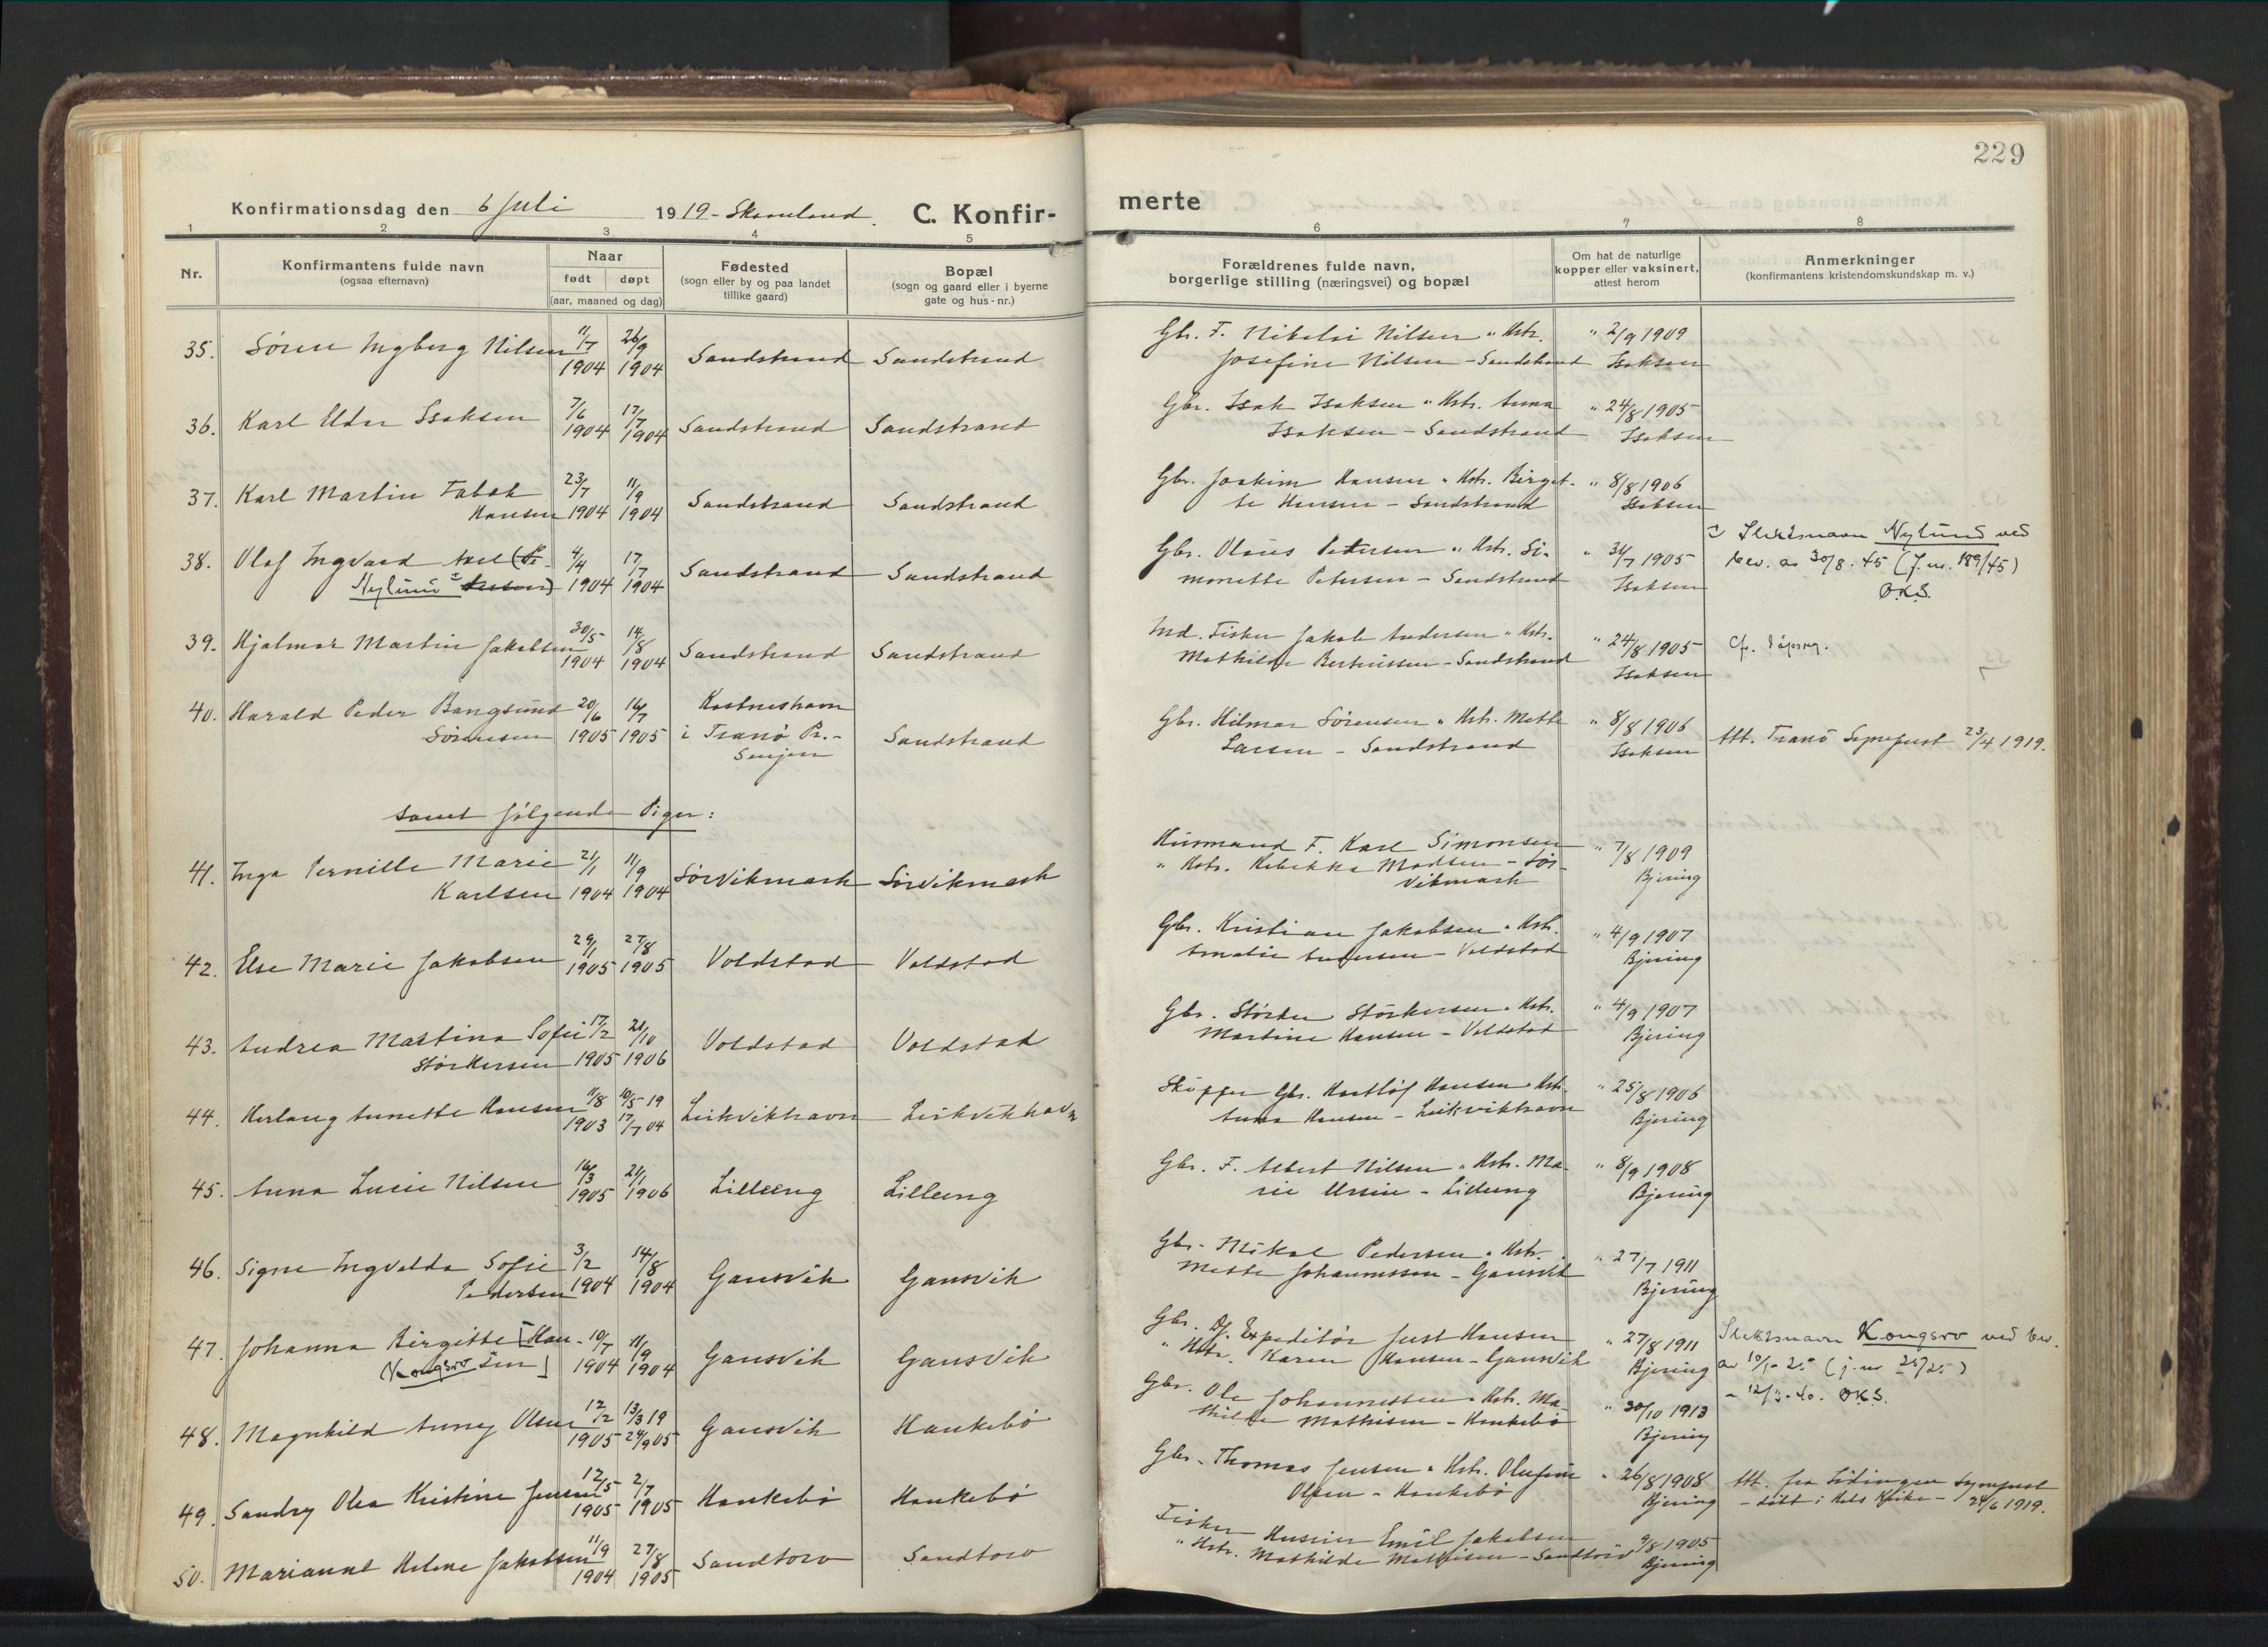 229
Konfirmationsdag den 6 Juli 1919 - Skaanland. C. Konfirmerte
1 2 3 4 5 6 7 8
Nr.
Konfirmantens fulde navn
(ogsaa efternavn)
Naar
født døpt
(aar, maaned og dag)
Fødested
(sogn eller by og paa landet
tillike gaard)
Bopæl
(sogn og gaard eller i byerne
gate og hus-nr.)
Forældrenes fulde navn,
borgerlige stilling (næringsvei) og bopæl
Om hat de naturlige
kopper eller vaksinert,
attest herom
Anmerkninger
(konfirmantens kristendomskundskap m. v.)
35. Sören Ingberg Nilsen 11/7 1904 26/9 1904 Sandstrand Sandstrand
Gbr. F. Nikolai Nilsen " Hstr. " 2/9 1909
Josefine Nilsen - Sandstrand Isaksen
36. Karl Elder Isaksen 7/6 1904 17/7 1904 Sandstrand Sandstrand
Gbr. Isak Isaksen " Hstr. Anna " 24/8 1905
Isaksen - Sandstrand Isaksen
37. Karl Martin
Hansen 23/7 1904 11/9 1904 Sandstrand Sandstrand
Gbr. Joakim Hansen " Hstr. Birgit- " 8/8 1906
te Hansen - Sandstrand Isaksen
38. Olaf Ingvard Axel (Pe-
Nylund 2 tersen) 4/4 1904 17/7 1904 Sandstrand Sandstrand
Gbr. Olaus Petersen " Hstr. Si- " 31/7 1905
monette Petersen - Sandstrand Isaksen
2) Slektsnavn Nylund ved
bev. av 30/8. 45 (J. nr. 189/45)
O.K.S.
39. Hjalmar Martin Jakobsen 30/5 1904 14/8 1904 Sandstrand Sandstrand
Ind. Fisker Jakob Andersen " Hstr. " 24/8 1905
Mathilde Berteussen - Sandstrand Isaksen
40. Harald Peder Bangsund
Sörensen 20/6 1905 16/7 1905
Kastneshavn
i Tranö Pr. -
Senjen
Sandstrand
Gbr. Hilmar Sörensen " Hstr. Mette " 8/8 1906
Larsen - Sandstrand Isaksen
Att. Tranö Sogneprest 23/4 1919.
samt følgende Piger:
41. Inga Pernille Marie
Karlsen 21/1 1904 11/9 1904 Sörvikmark Sörvikmark
Husmand F. Karl Simonsen " 7/8 1909
" Hstr. Rebekka Madsen - Sör- Bjering
vikmark
42. Else Marie Jakobsen 29/1 1905 27/8 1905 Voldstad Voldstad
Gbr. Kristian Jakobsen " Hstr. " 4/9 1907
Amalie Andersen - Voldstad Bjering
43. Andrea Martina Sofie
Störkersen 17/2 1905 21/10 1906 Voldstad Voldstad
Gbr. Störker Störkersen " Hstr. " 4/9 1907
Martine Hansen - Voldstad Bjering
44. Herlaug Anette Hansen 11/8 1903 10/5 19 17/7 04 Leikvikhavn Leikvikhavn
Skipper Gbr. Hartlöf Hansen " Hstr. " 25/8 1906
Anna Hansen - Leikvikhavn Bjering
45. Anna Lucie Nilsen 16/3 1905 21/1 1906 Lilleeng Lilleeng
Gbr. F. Albert Nilsen " Hstr. Ma- " 8/9 1908
rie Ursin - Lilleeng Bjering
46. Signe Ingvalda Sofie
Pedersen 3/2 1904 14/8 1904 Gansvik Gansvik
Gbr. Mikal Pedersen " Hstr. " 27/7 1911
Mette Johannessen - Gansvik Bjering
47. Johanna Birgitte [Han-
(Kongsro sen] 10/7 1904 11/9 1904 Gansvik Gansvik
Gbr. Df. Expeditör Just Hansen " 27/8 1911
" Hstr. Karen Hansen - Gansvik Bjering
Slektsnavn Kongsro ved bev.
av 10/1-25 (j. nr 25/25)
- 12/11-40. O.K.S.
48. Magnhild Anny Olsen 12/2 1905 13/3 19 24/9 05 Gansvik Haukebö
Gbr. Ole Johannessen " Hstr. Ma- " 30/10 1913
thilde Mathisen - Haukebö Bjering
49. Sandry Olea Kristine Jensen 12/5 1905 2/7 1905 Haukebö Haukebö
Gbr. Thomas Jensen " Hstr. Olufine " 26/8 1908
Olsen - Haukebö Bjering
Att. fra Lödingen Sogneprest
- döbt i Hols Kirke - 24/6 1919.
50. Marianne Helene Jakobsen 11/9 1904 27/8 1905 Sandtorv Sandtorv
Fisker Huseier Emil Jakobsen 9/8 1905
" Hstr. Mathilde Mathisen - Sandtorv Bjering